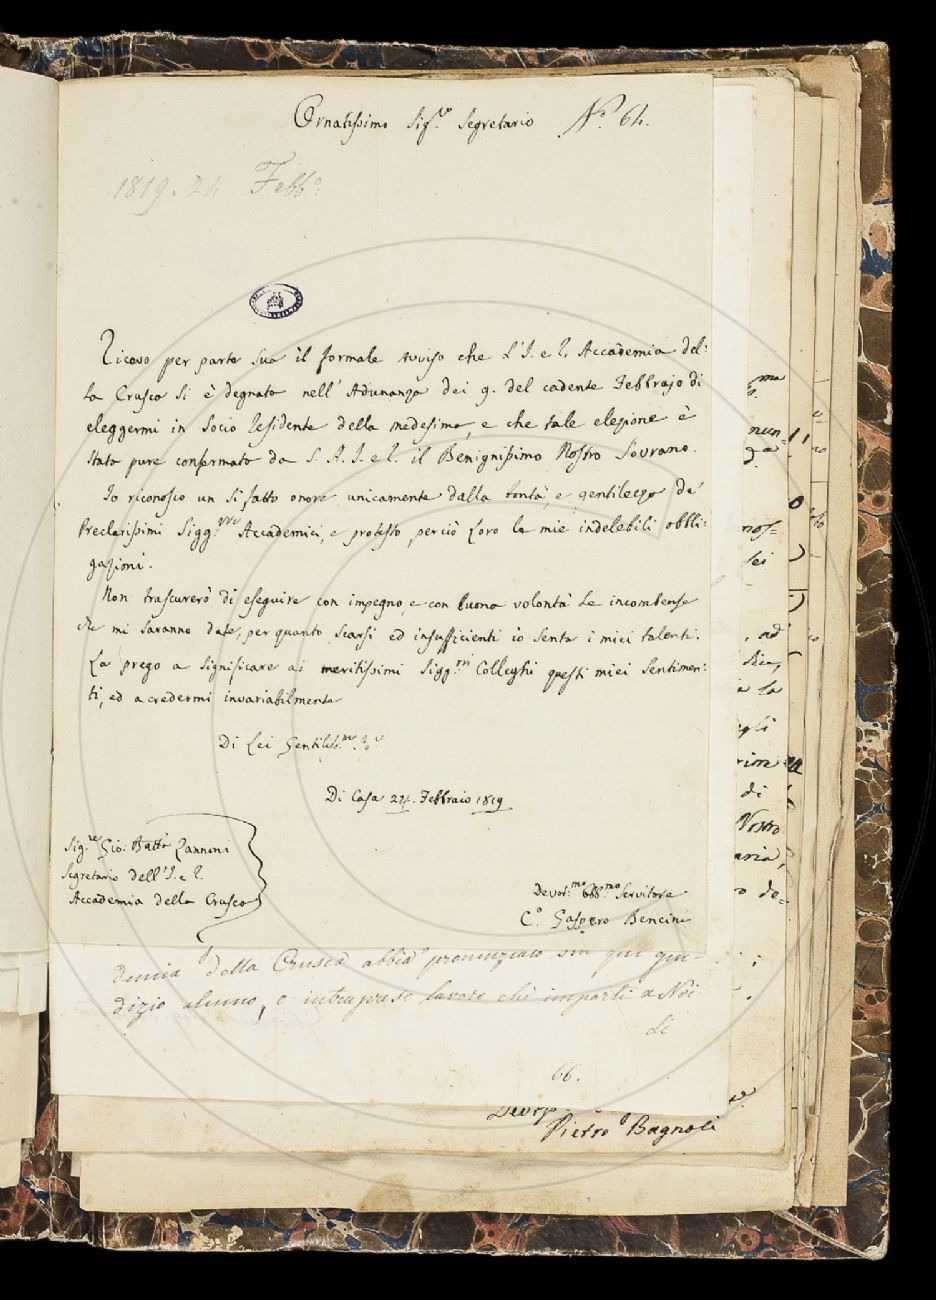 Ornatissimo Sig.re Segretario N.o 64.
1819. 24 Febb.o
Ricevo per parte Sua il formale avviso che l'I. e R. Accademia del:
la Crusca si è degnata nell' Adunanza dei 9. del cadente Febbrajo di
eleggermi in Socio Residente della medesima, e che tale elezione è
stata pure confermata da S. A. I. e R. il Benignissimo Nostro Sovrano.
Io riconosco un sì fatto onore unicamente dalla bontà, e gentilezza de'
Preclarissimi Sigg.ri Accademici, e protesto perciò Loro le mie indelebili obbli:
gazioni.
Non trascurerò di eseguire con impegno, e con buona volontà le incombense
che mi saranno date, per quanto scarsi ed insufficienti io senta i miei talenti.
La prego a significare ai meritissimi Sigg.ri Colleghi questi miei sentimen:
ti, ed a credermi invariabilmente
Di Lei Gentiliss.mo Sig.re
Di Casa 24. Febbraio 1819
Sig.re Gio: Batta Zannoni
Segretario dell'I. e R.
Accademia della Crusca
Devot.mo Obb.mo Servitore
C.o Gaspero Bencini
demia della Crusca abbia pronunziato sin qui giu=
dizio alcuno, o intrapreso lavoro chè importi a Noi
di
66.
Pietro Bagnoli
ma
nun=
mos=
lei
, ad
la
di
Nostro
de=